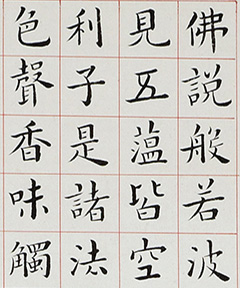 佛説般若波
見五蕴皆空
利子是諸法
色聲香味觸